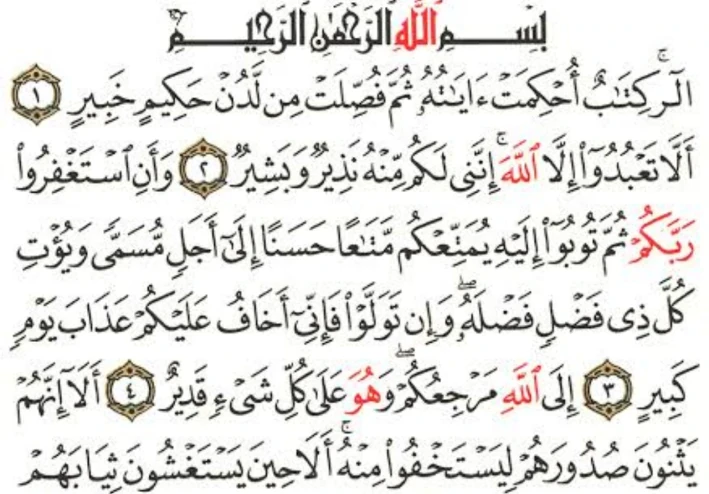 بِسْمِ ٱللَّهِ ٱلرَّحْمَٰنِ ٱلرَّحِيمِ
الٓر ۚ كِتَٰبٌ أُحْكِمَتْ ءَايَٰتُهُۥ ثُمَّ فُصِّلَتْ مِن لَّدُنْ حَكِيمٍ خَبِيرٍ ١
أَلَّا تَعْبُدُوٓا۟ إِلَّا ٱللَّهَ ۚ إِنَّنِى لَكُم مِّنْهُ نَذِيرٌ وَبَشِيرٌ ٢ وَأَنِ ٱسْتَغْفِرُوا۟
رَبَّكُمْ ثُمَّ تُوبُوٓا۟ إِلَيْهِ يُمَتِّعْكُم مَّتَٰعًا حَسَنًا إِلَىٰٓ أَجَلٍ مُّسَمًّى وَيُؤْتِ
كُلَّ ذِى فَضْلٍ فَضْلَهُۥ ۖ وَإِن تَوَلَّوْا۟ فَإِنِّىٓ أَخَافُ عَلَيْكُمْ عَذَابَ يَوْمٍ
كَبِيرٍ ٣ إِلَى ٱللَّهِ مَرْجِعُكُمْ ۖ وَهُوَ عَلَىٰ كُلِّ شَىْءٍ قَدِيرٌ ٤ أَلَآ إِنَّهُمْ
يَثْنُونَ صُدُورَهُمْ لِيَسْتَخْفُوا۟ مِنْهُ ۚ أَلَا حِينَ يَسْتَغْشُونَ ثِيَابَهُمْ